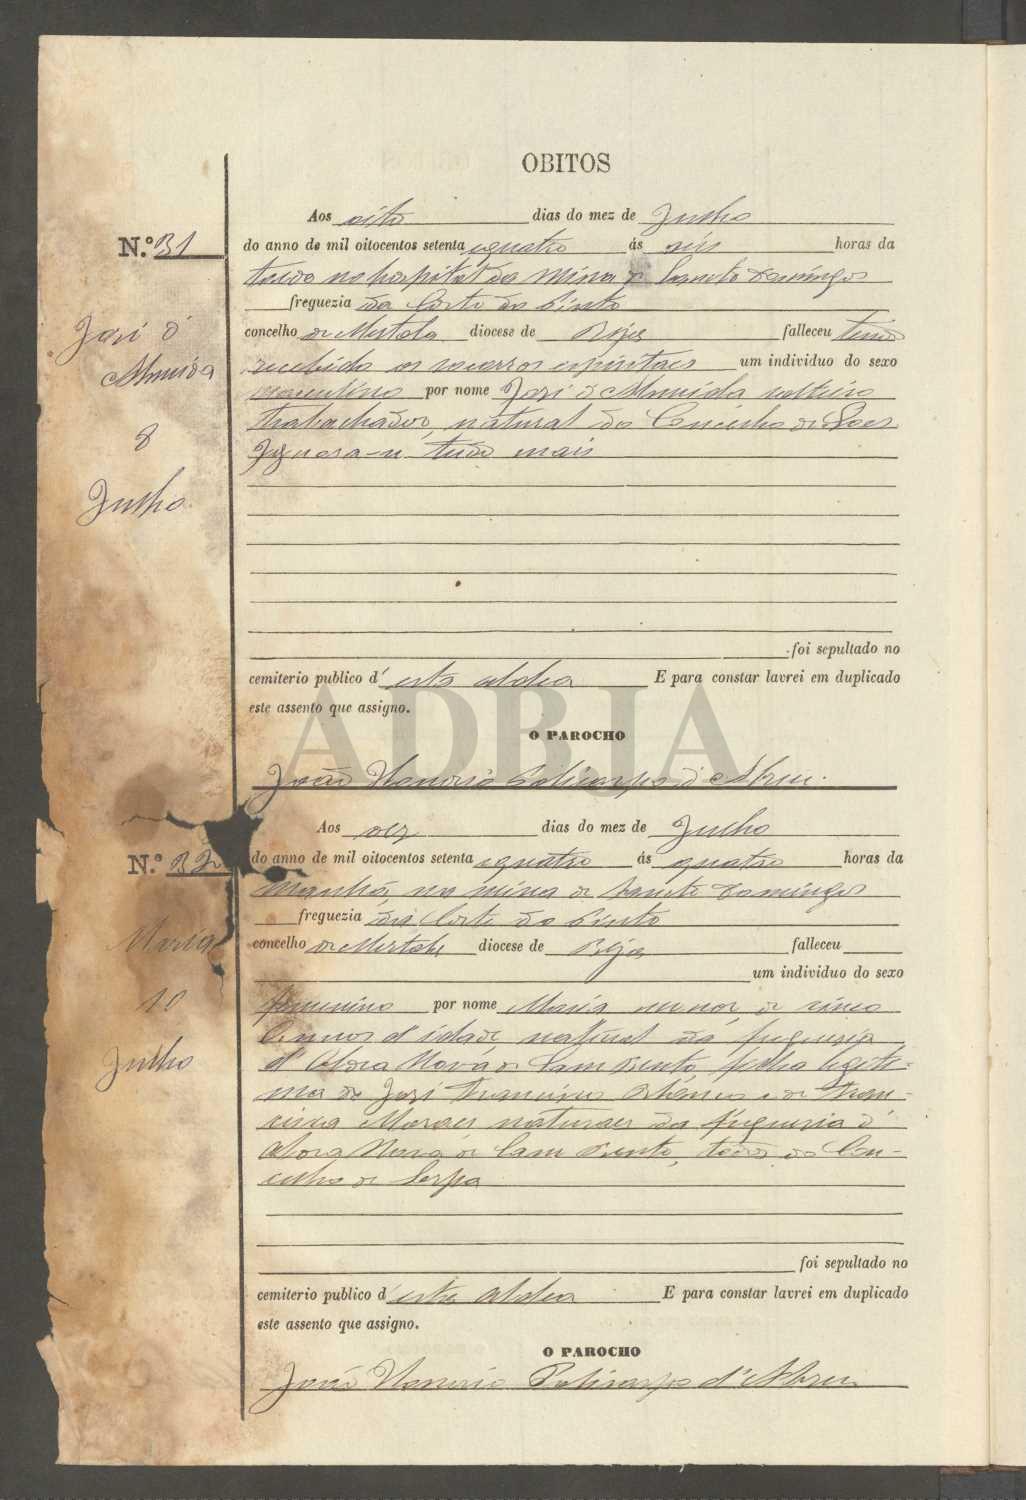 OBITOS
Aos oito dias do mez de Julho
N.º 31
do anno de mil oitocentos setenta equatro ás seis horas da
tarde no hospital da Mina de Sancto Domingos
freguezia da Corte do Pinto
concelho de Mertola diocese de Beja falleceu tendo
recebido os socorros espirituaes um individuo do sexo
masculino por nome José d'Almeida solteiro
trabachador, natural do Concelho de
Ignora-se tudo mais
José d'
Almeida
8
Julho
foi sepultado no
cemiterio publico d'esta aldea E para constar lavrei em duplicado
este assento que assigno.
O PAROCHO
João Honorio Policarpo d'Abreu.
ADBJA
Aos dez dias do mez de Julho
N.º 32
do anno de mil oitocentos setenta equatro ás quatro horas da
manhã, na mina de Sancto Domingos
freguezia da Corte do Pinto
concelho de Mertola diocese de Beja falleceu
um individuo do sexo
femenino por nome Maria menor, de cinco
annos d'idade, natural da freguesia
d'Aldea Nova de Sam Bento, filha legiti-
ma de José Francisco e de Fran-
cisca Moraes naturaes da freguesia d'
Aldea Nova de Sam Bento, todos do Con-
celho de Serpa
Maria
10
Julho
foi sepultado no
cemiterio publico d'esta aldea E para constar lavrei em duplicado
este assento que assigno.
O PAROCHO
João Honorio Policarpo d'Abreu